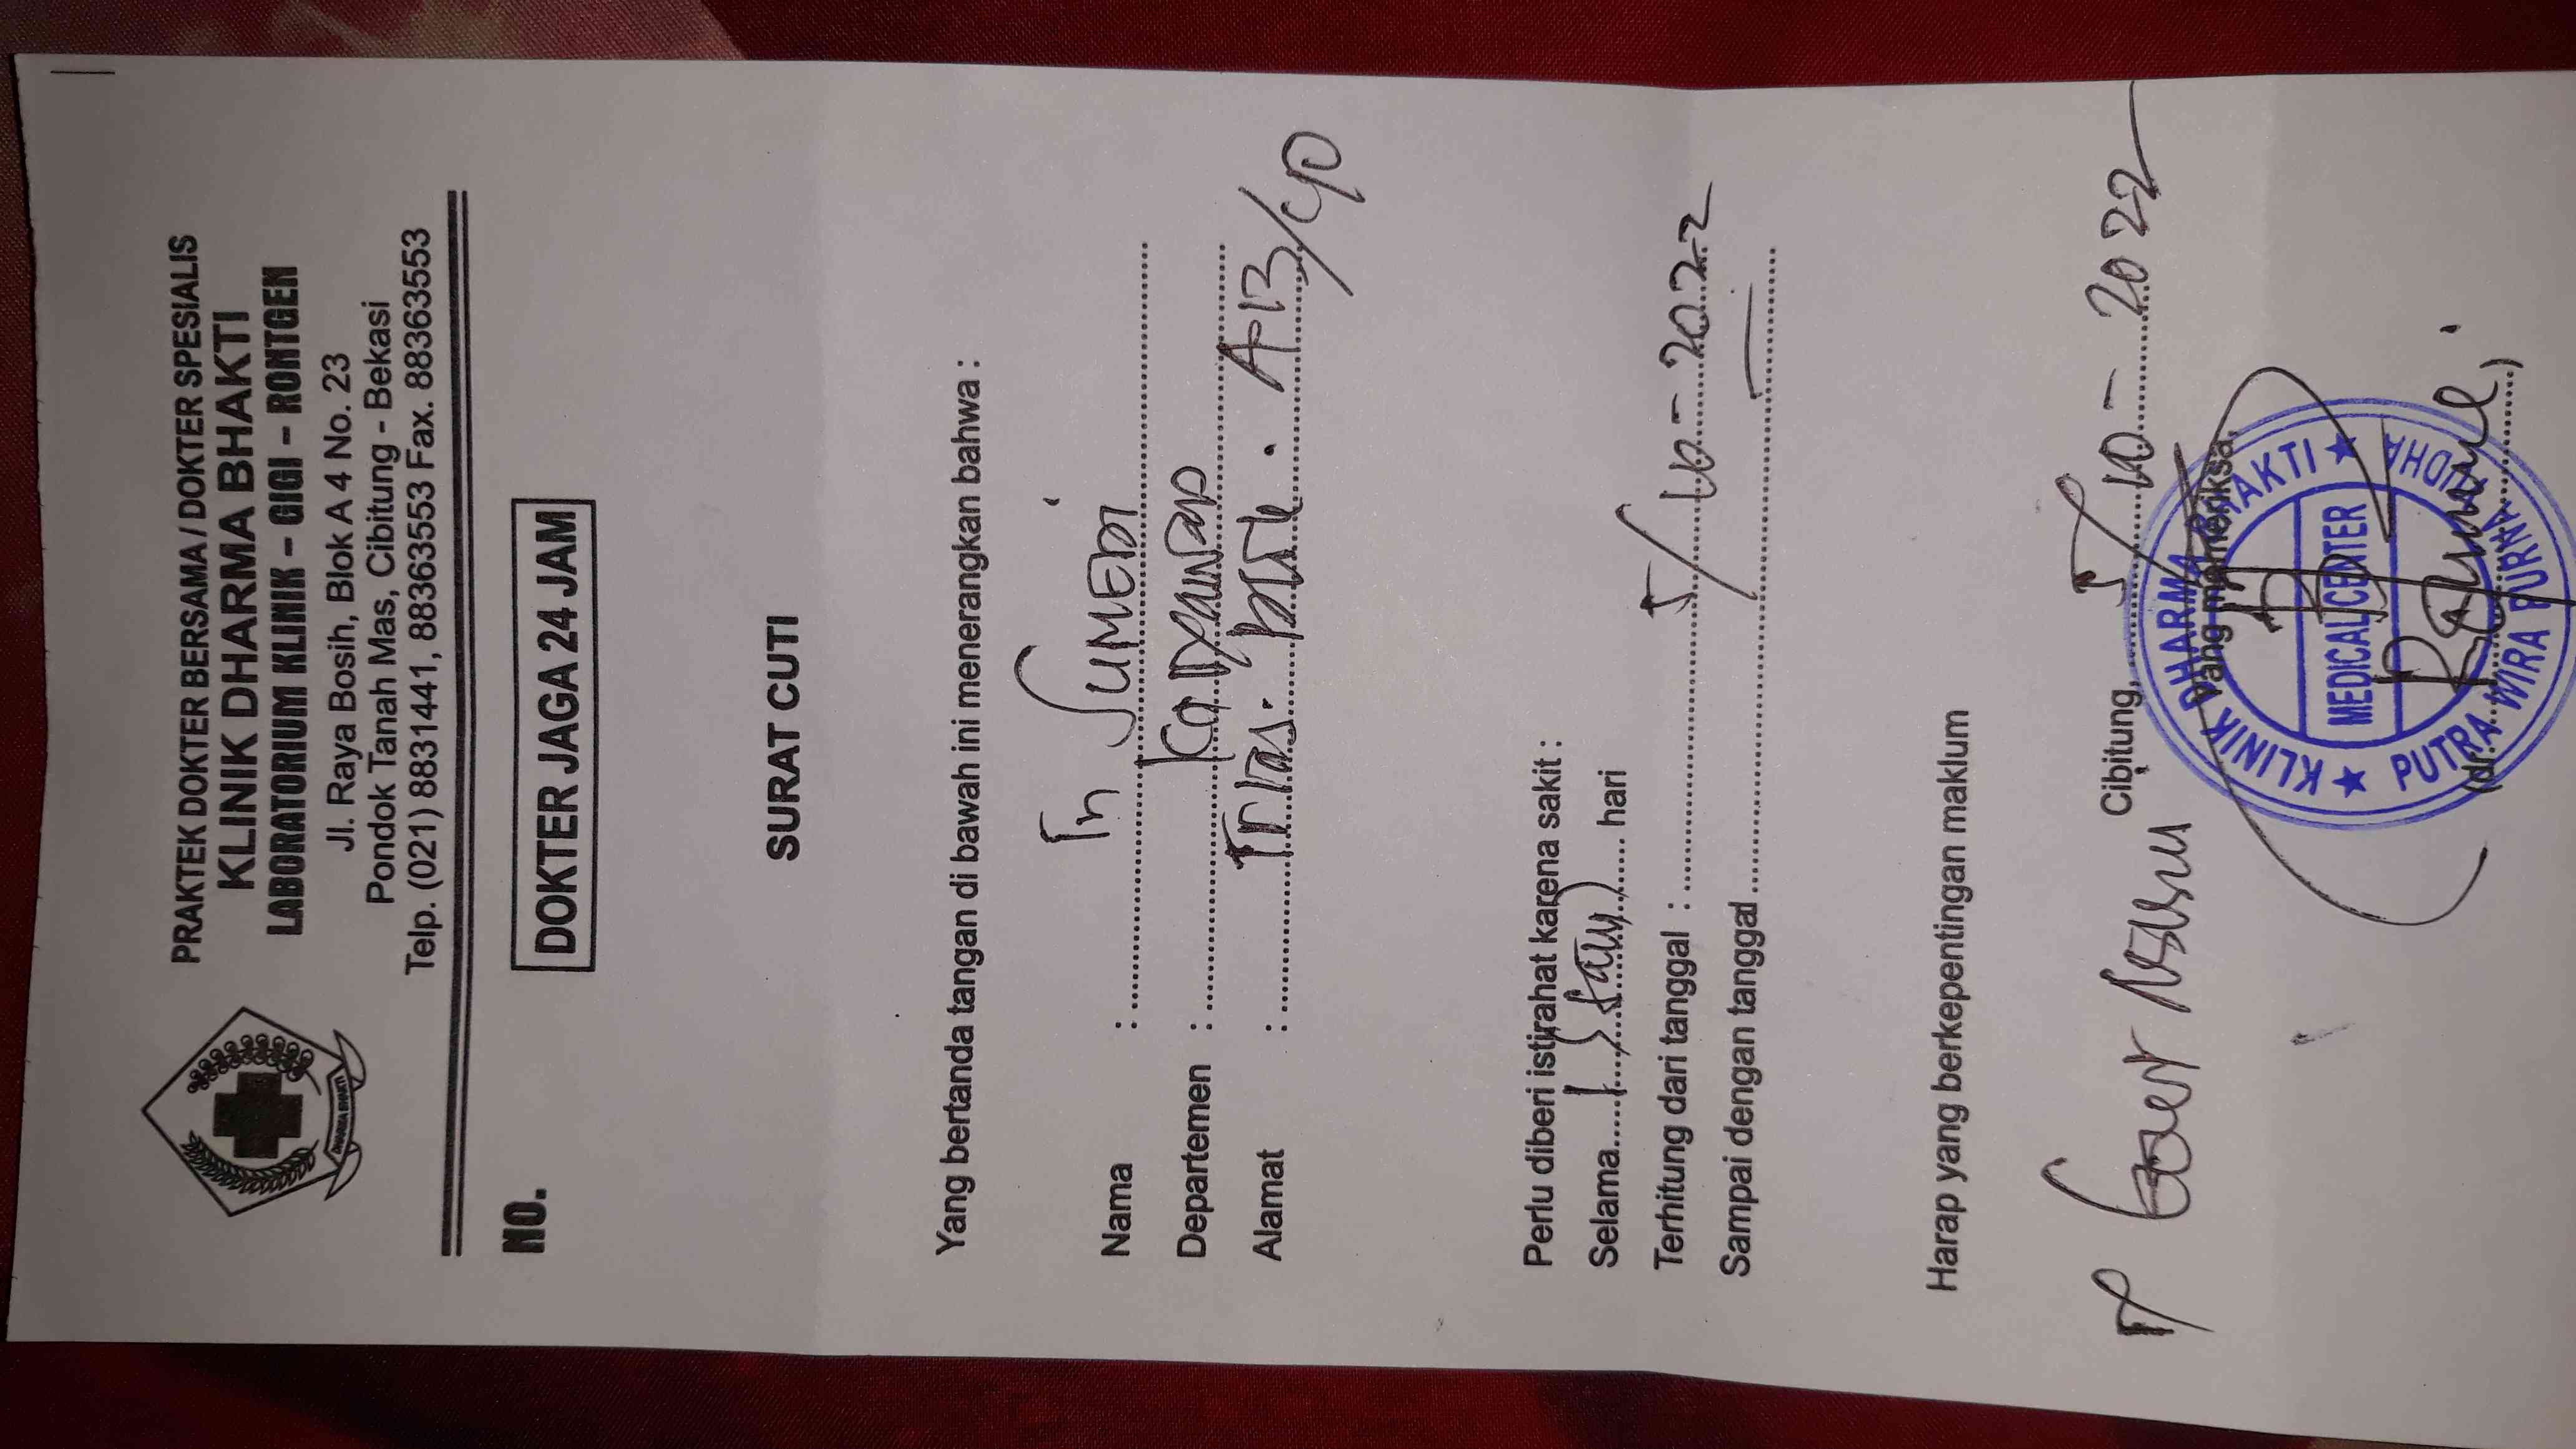 PRAKTEK DOKTER BERSAMA / DOKTER SPESIALIS
KLINIK DHARMA BHAKTI
LABORATORIUM KLINIK - GIGI - RONTGEN
Jl. Raya Bosih, Blok A 4 No. 23
Pondok Tanah Mas, Cibitung - Bekasi
Telp. (021) 8831441, 88363553 Fax. 88363553
DHARMA BHAKTI
NO.
DOKTER JAGA 24 JAM
SURAT CUTI
Yang bertanda tangan di bawah ini menerangkan bahwa :
Nama : Tn SUMEDI
Departemen : Karyawan
Alamat : Trias. A-13/
Perlu diberi istirahat karena sakit :
Selama 1 (satu) hari
Terhitung dari tanggal : 5/10-2022
Sampai dengan tanggal
Harap yang berkepentingan maklum
Cibitung, 5/10-2022
Yang memeriksa,
KLINIK DHARMA BHAKTI
MEDICAL CENTER
PUTRA WIRA PURNA YUDHA
(dr. )